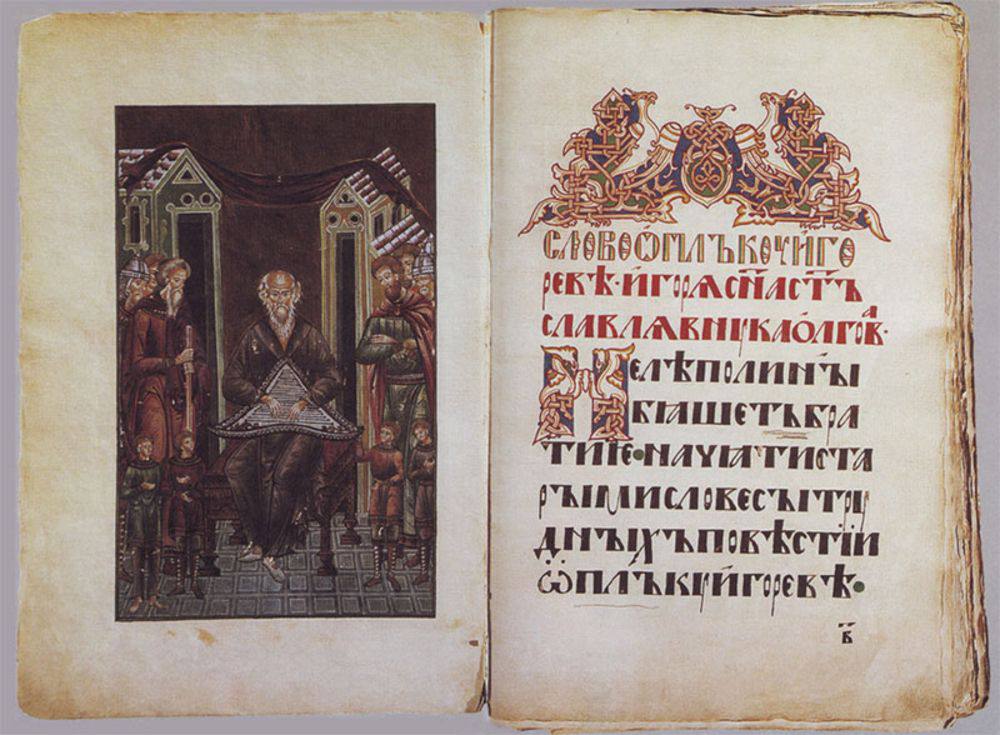 СЛОВОѾПЛЪКꙊИ҆ГО
РЕВѢ·И҆ГОРѦСН҃АСТ҃Ъ
СЛАВЛѦВНꙊКАОЛГОВⷶ·
НЕЛѢПОЛИНЫ
БꙖШЕТЪБРА
ТИѤ·НАЧꙖТИСТА
РЪІМИСЛОВЕСЪІТРꙊ
ДНЪІХЪПОВѢСТІЙ
ѾПЛЪКꙊИ҆ГОРЕВѢ·
в҃